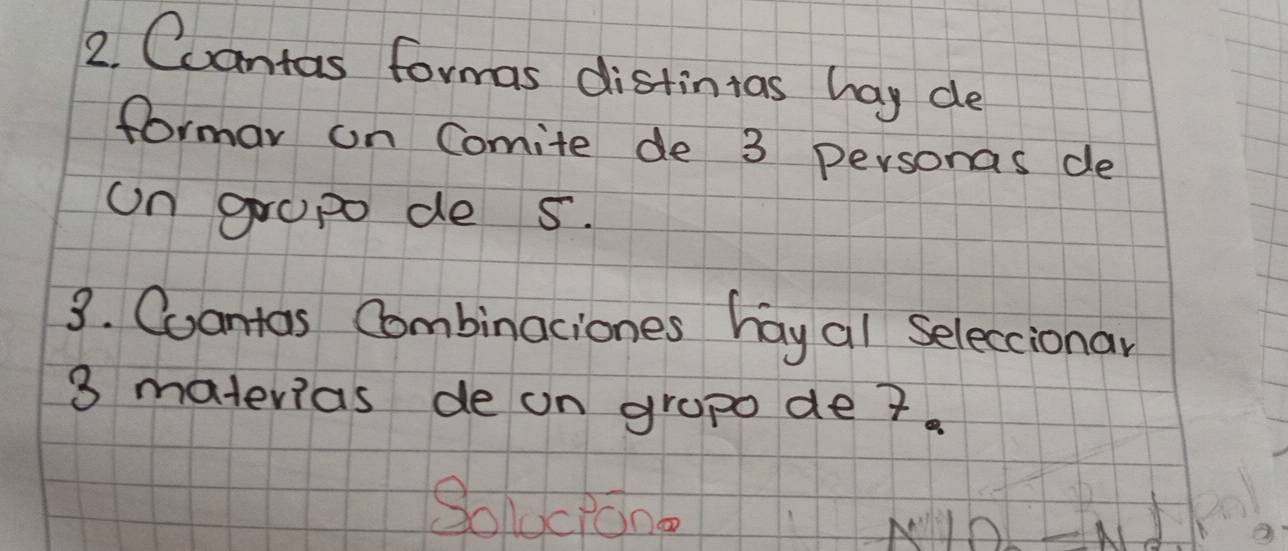 2. Cuantas formas distintas hay de
formar un Comite de 3 personas de
un grupo de 5.
3. Cuantas Combinaciones hay al Seleccionar
3 materias de un grupo de 7.
Solución